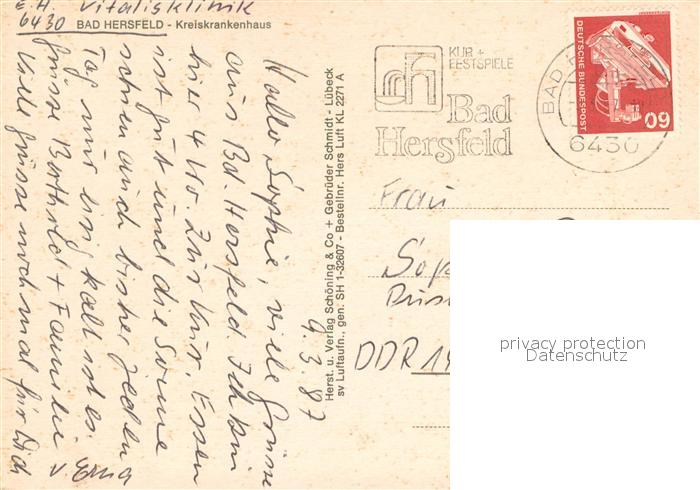 E.H. Vitalisklinik
6430 BAD HERSFELD - Kreiskrankenhaus
9.3.87
Hallo Sophie, viele Grüsse
aus Bd. Hersfeld. Ich bin
hier 4 Wo. zur Kur. Essen
ist gut und die Sonne
schien auch bisher jeden
Tag nur eisig kalt ist es.
Grüsse Berthold + Familie v. Erna
Viele Grüsse noch mal für Dich
Herst. u. Verlag Schöning & Co + Gebrüder Schmidt - Lübeck
sv Luftaufn., gen. SH 1-32607 - Bestellnr. Hers Luft KL 2271 A
KUR +
FESTSPIELE
Bad
Hersfeld
BAD
6430
DEUTSCHE BUNDESPOST
60
Frau
DDR
privacy protection
Datenschutz